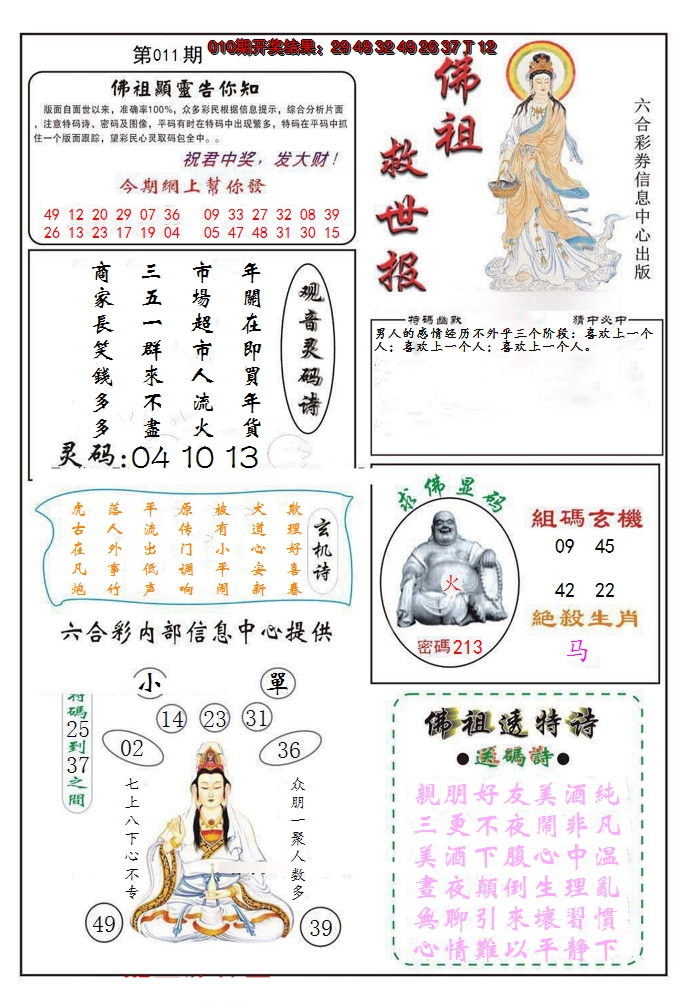 第011期
010期开奖结果：29 48 32 49 26 37 T 12
佛祖顯靈告你知
版面自面世以来，准确率100%，众多彩民根据信息提示，综合分析片面
，注意特码诗、密码及图像，平码有时在特码中出现繁多，特码在平码中抓
住一个版面跟踪，望彩民心灵取码包全中。。
祝君中奖，发大财！
今期網上幫你發
49 12 20 29 07 36 09 33 27 32 08 39
26 13 23 17 19 04 05 47 48 31 30 15
佛祖
救世报
六合彩券信息中心出版
观音灵码诗
年關在即買年貨
市場超市人流火
三五一群來不盡
商家長笑錢多多
灵码:04 10 13
特碼幽默
猜中必中
男人的感情经历不外乎三个阶段：喜欢上一个
人；喜欢上一个人；喜欢上一个人。
玄机诗
欺理好喜春
犬道心安新
被有小平闹
原传门调响
平流出低声
落人外事竹
虎古在凡炮
六合彩内部信息中心提供
求佛显码
火
密碼213
組碼玄機
09 45
42 22
絶殺生肖
马
小
單
特碼25到37之間
14 23 31
02
36
七上八下心不专
众朋一聚人数多
49
39
佛祖透特诗
●送碼詩●
親朋好友美酒純
三更不夜鬧非凡
美酒下腹心中溫
晝夜顛倒生理亂
無聊引來壞習慣
心情難以平静下